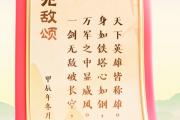 无敌颂
天下英雄皆称雄。
身如铁塔心如钢，
万军之中显威风。
一剑无敌破长空，
甲辰年冬月